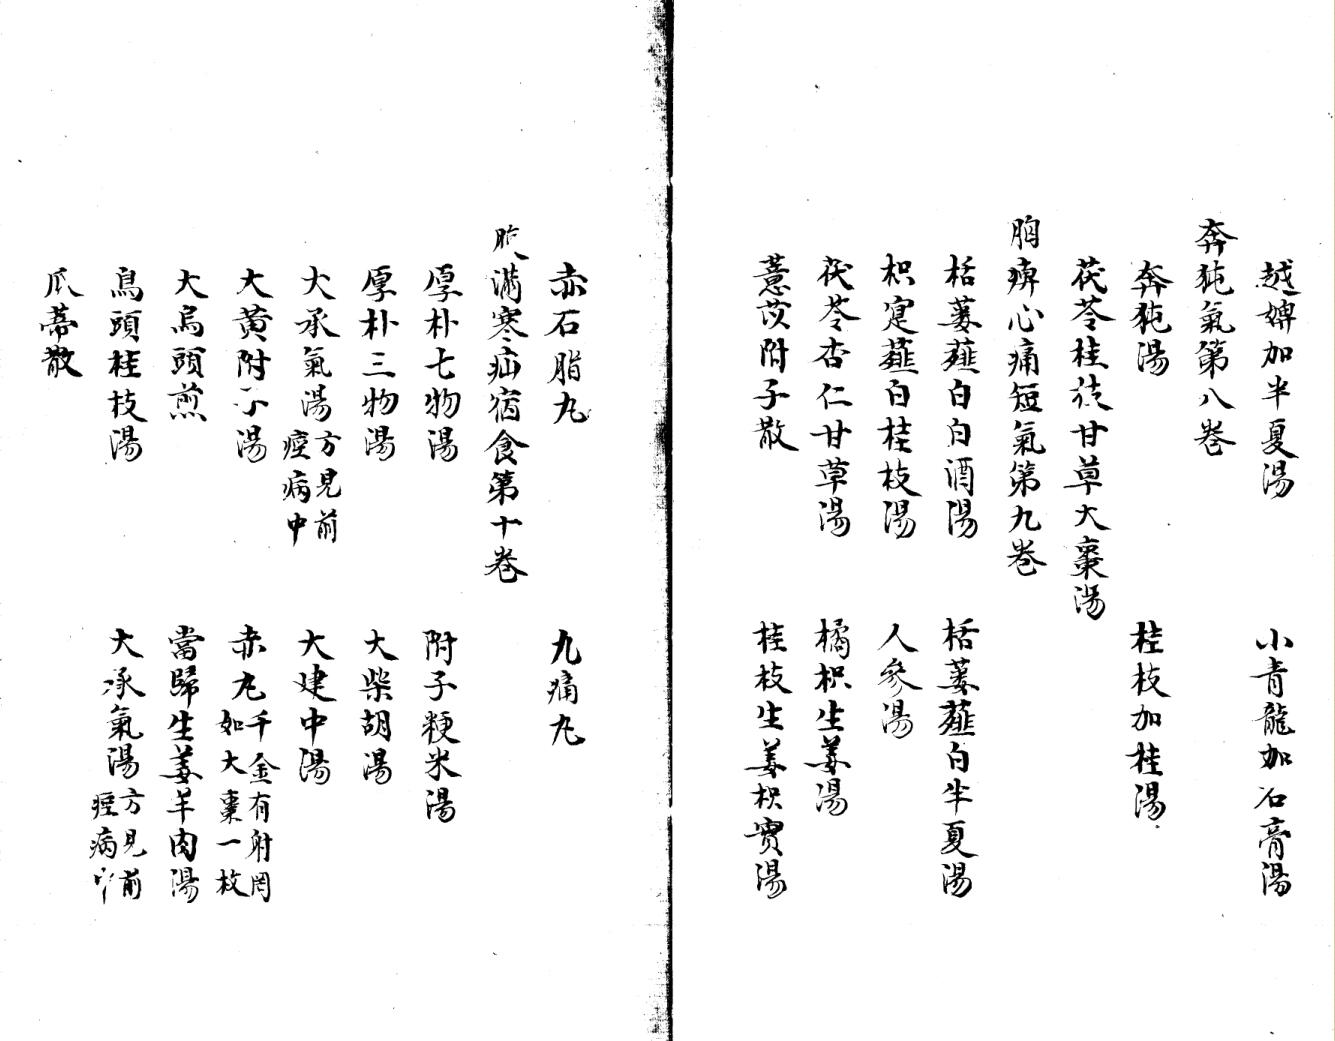 越婢加半夏湯　小青龍加石膏湯
奔㹠氣第八卷
奔㹠湯　桂枝加桂湯
茯苓桂枝甘草大棗湯
胸痹心痛短氣第九卷
栝蔞薤白白酒湯　栝蔞薤白半夏湯
枳寔薤白桂枝湯　人參湯
茯苓杏仁甘草湯　橘枳生姜湯
薏苡附子散　桂枝生姜枳實湯
赤石脂丸　九痛丸
滿寒疝宿食第十卷
厚朴七物湯　附子粳米湯
厚朴三物湯　大柴胡湯
大承氣湯方見前痙病中　大建中湯
大黃附子湯　赤丸千金有射罔如大棗一枚
大烏頭煎　當歸生姜羊肉湯
烏頭桂枝湯　大承氣湯方見前痙病中
瓜蒂散